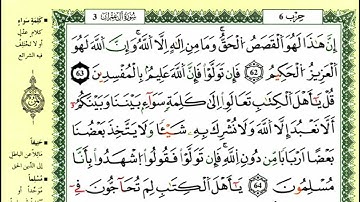 حزب 6
سورة آل عمران 3
إِنَّ هَٰذَا لَهُوَ ٱلْقَصَصُ ٱلْحَقُّ ۚ وَمَا مِنْ إِلَٰهٍ إِلَّا ٱللَّهُ ۚ وَإِنَّ ٱللَّهَ لَهُوَ
ٱلْعَزِيزُ ٱلْحَكِيمُ 62 فَإِن تَوَلَّوْا۟ فَإِنَّ ٱللَّهَ عَلِيمٌۢ بِٱلْمُفْسِدِينَ 63
قُلْ يَٰٓأَهْلَ ٱلْكِتَٰبِ تَعَالَوْا۟ إِلَىٰ كَلِمَةٍ سَوَآءٍۭ بَيْنَنَا وَبَيْنَكُمْ
أَلَّا نَعْبُدَ إِلَّا ٱللَّهَ وَلَا نُشْرِكَ بِهِۦ شَيْـًٔا وَلَا يَتَّخِذَ بَعْضُنَا
بَعْضًا أَرْبَابًا مِّن دُونِ ٱللَّهِ ۚ فَإِن تَوَلَّوْا۟ فَقُولُوا۟ ٱشْهَدُوا۟ بِأَنَّا
مُسْلِمُونَ 64 يَٰٓأَهْلَ ٱلْكِتَٰبِ لِمَ تُحَآجُّونَ فِىٓ
كلمة سواء
كلام عدل
أو لا تختلف
فيه الشرائع
حنيفا
مائلا عن الباطل
مسلما